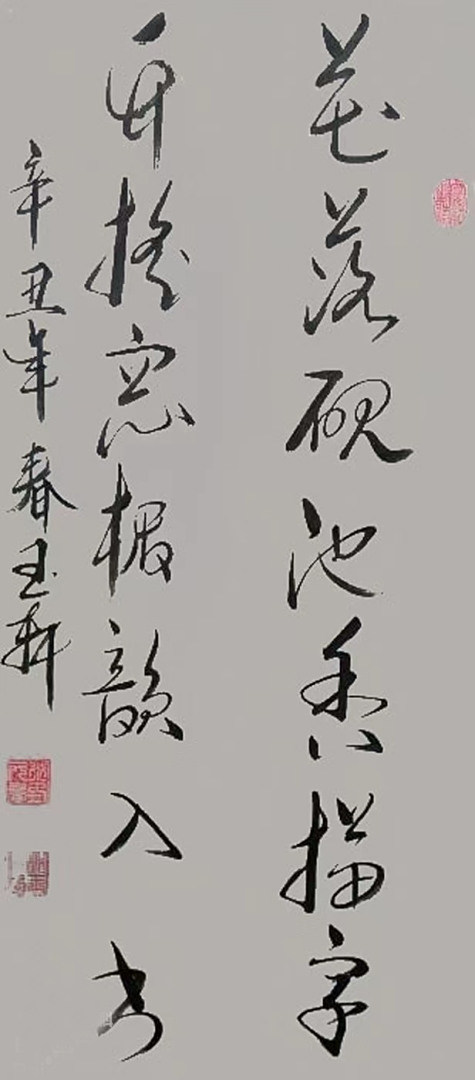 花落砚池香描字
竹摇窗楣韵入书
辛丑年春玉轩